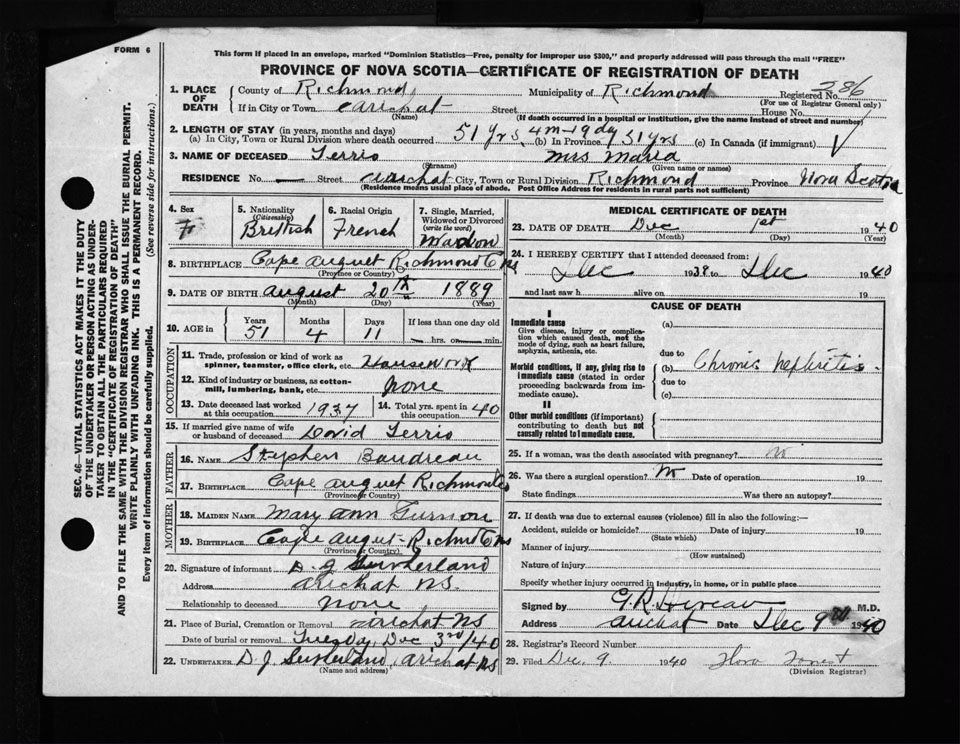 FORM 6
This form if placed in an envelope, marked "Dominion Statistics—Free, penalty for improper use $300," and properly addressed will pass through the mail "FREE"
PROVINCE OF NOVA SCOTIA—CERTIFICATE OF REGISTRATION OF DEATH
1. PLACE OF DEATH County of Richmond Municipality of Richmond Registered No. 386
(For use of Registrar General only)
If in City or Town Arichat Street House No.
(Name) (If death occurred in a hospital or institution, give the name instead of street and number)
2. LENGTH OF STAY (in years, months and days)
(a) In City, Town or Rural Division where death occurred 51 yrs. 4 m - 19 dy (b) In Province 51 yrs (c) In Canada (if immigrant)
3. NAME OF DECEASED Terrio Mrs Maria
(Surname) (Given name or names)
RESIDENCE No. — Street Arichat City, Town or Rural Division Richmond Province Nova Scotia
(Residence means usual place of abode. Post Office Address for residents in rural parts not sufficient)
4. Sex F
5. Nationality (Citizenship) Brittish
6. Racial Origin French
7. Single, Married, Widowed or Divorced (write the word)
8. BIRTHPLACE Cape Auguet Richmond Co NS
(Province or Country)
9. DATE OF BIRTH August 20th 1889
(Month) (Day) (Year)
10. AGE in Years 51 Months 4 Days 11 If less than one day old — hrs. or — min.
OCCUPATION
11. Trade, profession or kind of work as spinner, teamster, office clerk, etc. Housework
12. Kind of industry or business, as cotton-mill, lumbering, bank, etc. none
13. Date deceased last worked at this occupation 1937
14. Total yrs. spent in this occupation 40
15. If married give name of wife or husband of deceased David Terrio
FATHER
16. NAME Stephen Boudreau
17. BIRTHPLACE Cape Auguet Richmond Co NS
(Province or Country)
MOTHER
18. MAIDEN NAME Mary Ann
19. BIRTHPLACE Cape Auguet - Richmd Co NS
(Province or Country)
20. Signature of informant D. J. Sutherland
Address Arichat NS.
Relationship to deceased none
21. Place of Burial, Cremation or Removal Arichat NS
Date of burial or removal Tuesday, Dec 3rd/40
22. UNDERTAKER D. J. Sutherland, Arichat NS
(Name and address)
MEDICAL CERTIFICATE OF DEATH
23. DATE OF DEATH Dec 1st 1940
(Month) (Day) (Year)
24. I HEREBY CERTIFY that I attended deceased from:
Dec 1938 to Dec 1940
and last saw h alive on 19
CAUSE OF DEATH
I
Immediate cause
Give disease, injury or complication which caused death, not the mode of dying, such as heart failure, asphyxia, asthenia, etc.
(a)
due to
Morbid conditions, if any, giving rise to immediate cause (stated in order proceeding backwards from immediate cause).
(b) Chronic nephritis.
due to
(c)
II
Other morbid conditions (if important) contributing to death but not causally related to immediate cause.
25. If a woman, was the death associated with pregnancy? no
26. Was there a surgical operation? No Date of operation 19
State findings Was there an autopsy?
27. If death was due to external causes (violence) fill in also the following:—
Accident, suicide or homicide? Date of injury 19
(State which)
Manner of injury
(How sustained)
Nature of injury
Specify whether injury occurred in industry, in home, or in public place
Signed by M.D.
Address Arichat Date Dec 9th 1940
28. Registrar's Record Number
29. Filed Dec. 9. 1940 Flora
(Division Registrar)
SEC. 46—VITAL STATISTICS ACT MAKES IT THE DUTY
OF THE UNDERTAKER OR PERSON ACTING AS UNDER-
TAKER TO OBTAIN ALL THE PARTICULARS REQUIRED
IN THE "CERTIFICATE OF REGISTRATION OF DEATH"
AND TO FILE THE SAME WITH THE DIVISION REGISTRAR WHO SHALL ISSUE THE BURIAL PERMIT.
WRITE PLAINLY WITH UNFADING INK. THIS IS A PERMANENT RECORD.
Every item of information should be carefully supplied. (See reverse side for instructions.)